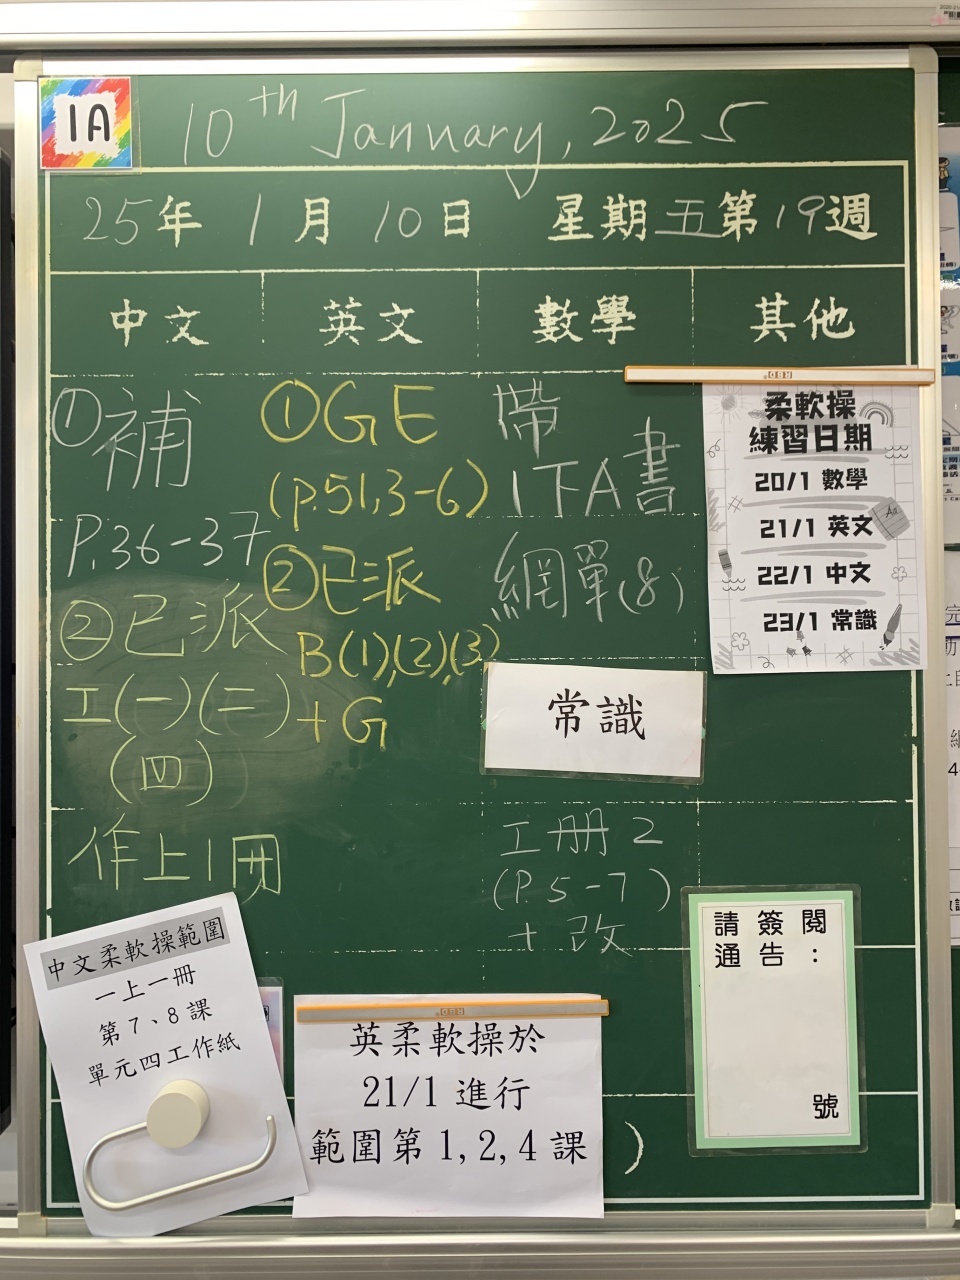 1A
10th January, 2025
25年 1月 10日 星期五第19週
中文 英文 數學 其他
①補
P.36-37
②已派
工(一)(二)
(四)
作上1冊
①GE
(p.51,3-6)
②已派
B(1),(2),(3)
+G
帶
1TA書
網單(8)
常識
工冊2
(P.5-7)
+改
柔軟操
練習日期
20/1 數學
21/1 英文
22/1 中文
23/1 常識
請簽閱
通告：
號
中文柔軟操範圍
一上一冊
第7、8課
單元四工作紙
英柔軟操於
21/1 進行
範圍第1,2,4課
)